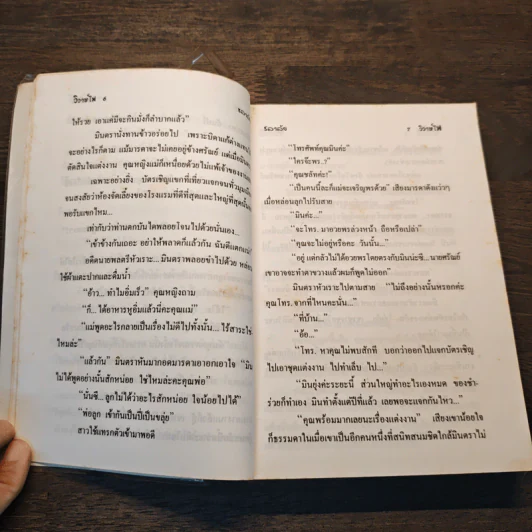 วิวาห์ไฟ 6
ให้รวย เอาแต่มีจะกินมั่งก็ลำบากแล้ว”
มินตรานั่งทานข้าวอร่อยไป เพราะบิดาแก้ต่าง
จะอย่างไรก็ตาม แม้มารดาจะไม่เคยอยู่ข้างศรัณย์ แต่เมื่อมิน
ตัดสินใจแต่งงาน คุณหญิงแม่ก็เหนื่อยด้วยไม่แพ้เจ้าของงาน
เฉพาะอย่างยิ่ง บัตรเชิญแขกที่เที่ยวแจกจนทั่วมุมเมือง
จนสงสัยว่าห้องจัดเลี้ยงของโรงแรมที่ดีที่สุดและใหญ่ที่สุดนั้น
พอรับแขกไหม...
เท่ากับว่าท่านตกบันไดพลอยโจนไปด้วยนั่นเอง...
“เข้าข้างกันเถอะ อย่าให้พลาดก็แล้วกัน ฉันดีแตกแน่”
อดีตนายพลตรีหัวเราะ... มินตราพลอยขำไปด้วย หล่อน
ใช้ผ้าแตะปากและดื่มน้ำ
“อ้าว... ทำไมอิ่มเร็ว” คุณหญิงถาม
“ก็... ได้อาหารหูอิ่มแล้วนี่คะคุณแม่”
“แม่พูดอะไรกลายเป็นเรื่องไม่ดีไปทั้งนั้น... ไร้สาระใช่
ไหมล่ะ”
“แล้วกัน” มินตราหันมากอดมารดาเอาอกเอาใจ “มิน
ไม่ได้พูดอย่างนั้นสักหน่อย ใช่ไหมล่ะคะคุณพ่อ”
“นั่นซี... ลูกไม่ได้ว่าอะไรสักหน่อย ใจน้อยไปได้”
“พ่อลูก เข้ากันเป็นปี่เป็นขลุ่ย”
สาวใช้แทรกตัวเข้ามาพอดี
7 วิวาห์ไฟ
“โทรศัพท์คุณมินค่ะ”
“ใครจ๊ะพร..?”
“คุณชลัทค่ะ!”
“เป็นคนนี้ละก็แม่จะเจริญพรด้วย” เสียงมารดาดังแว่วๆ
เมื่อหล่อนลุกไปรับสาย
“มินค่ะ...”
“จะโทร. มาอวยพรล่วงหน้า ถือหรือเปล่า”
“คุณจะไม่อยู่หรือคะ วันนั้น...”
“อยู่ แต่กลัวไม่ได้อวยพรโดยตรงกับมินน่ะซี... นายศรัณย์
เขาอาจจะทำตาขวางแล้วผมก็พูดไม่ออก”
มินตราหัวเราะไปตามสาย “ไม่ถึงอย่างนั้นหรอกค่ะ
คุณโทร. จากที่ไหนคะนั่น...”
“ที่บ้าน...”
“อ้อ...”
“โทร. หาคุณไม่พบสักที บอกว่าออกไปแจกบัตรเชิญ
ไปเอาชุดแต่งงาน ไปทำเล็บ ไป...”
“มินยุ่งค่ะระยะนี้ ส่วนใหญ่ทำอะไรเองหมด ของชำ-
ร่วยก็ทำเอง มินทำตั้งแต่ปีที่แล้ว เลยพอจะแจกกันไหว...”
“คุณพร้อมมากเลยนะเรื่องแต่งงาน” เสียงเขาน้อยใจ
ก็ธรรมดาในเมื่อเขาเป็นอีกคนหนึ่งที่สนิทสนมชิดใกล้มินตราไม่